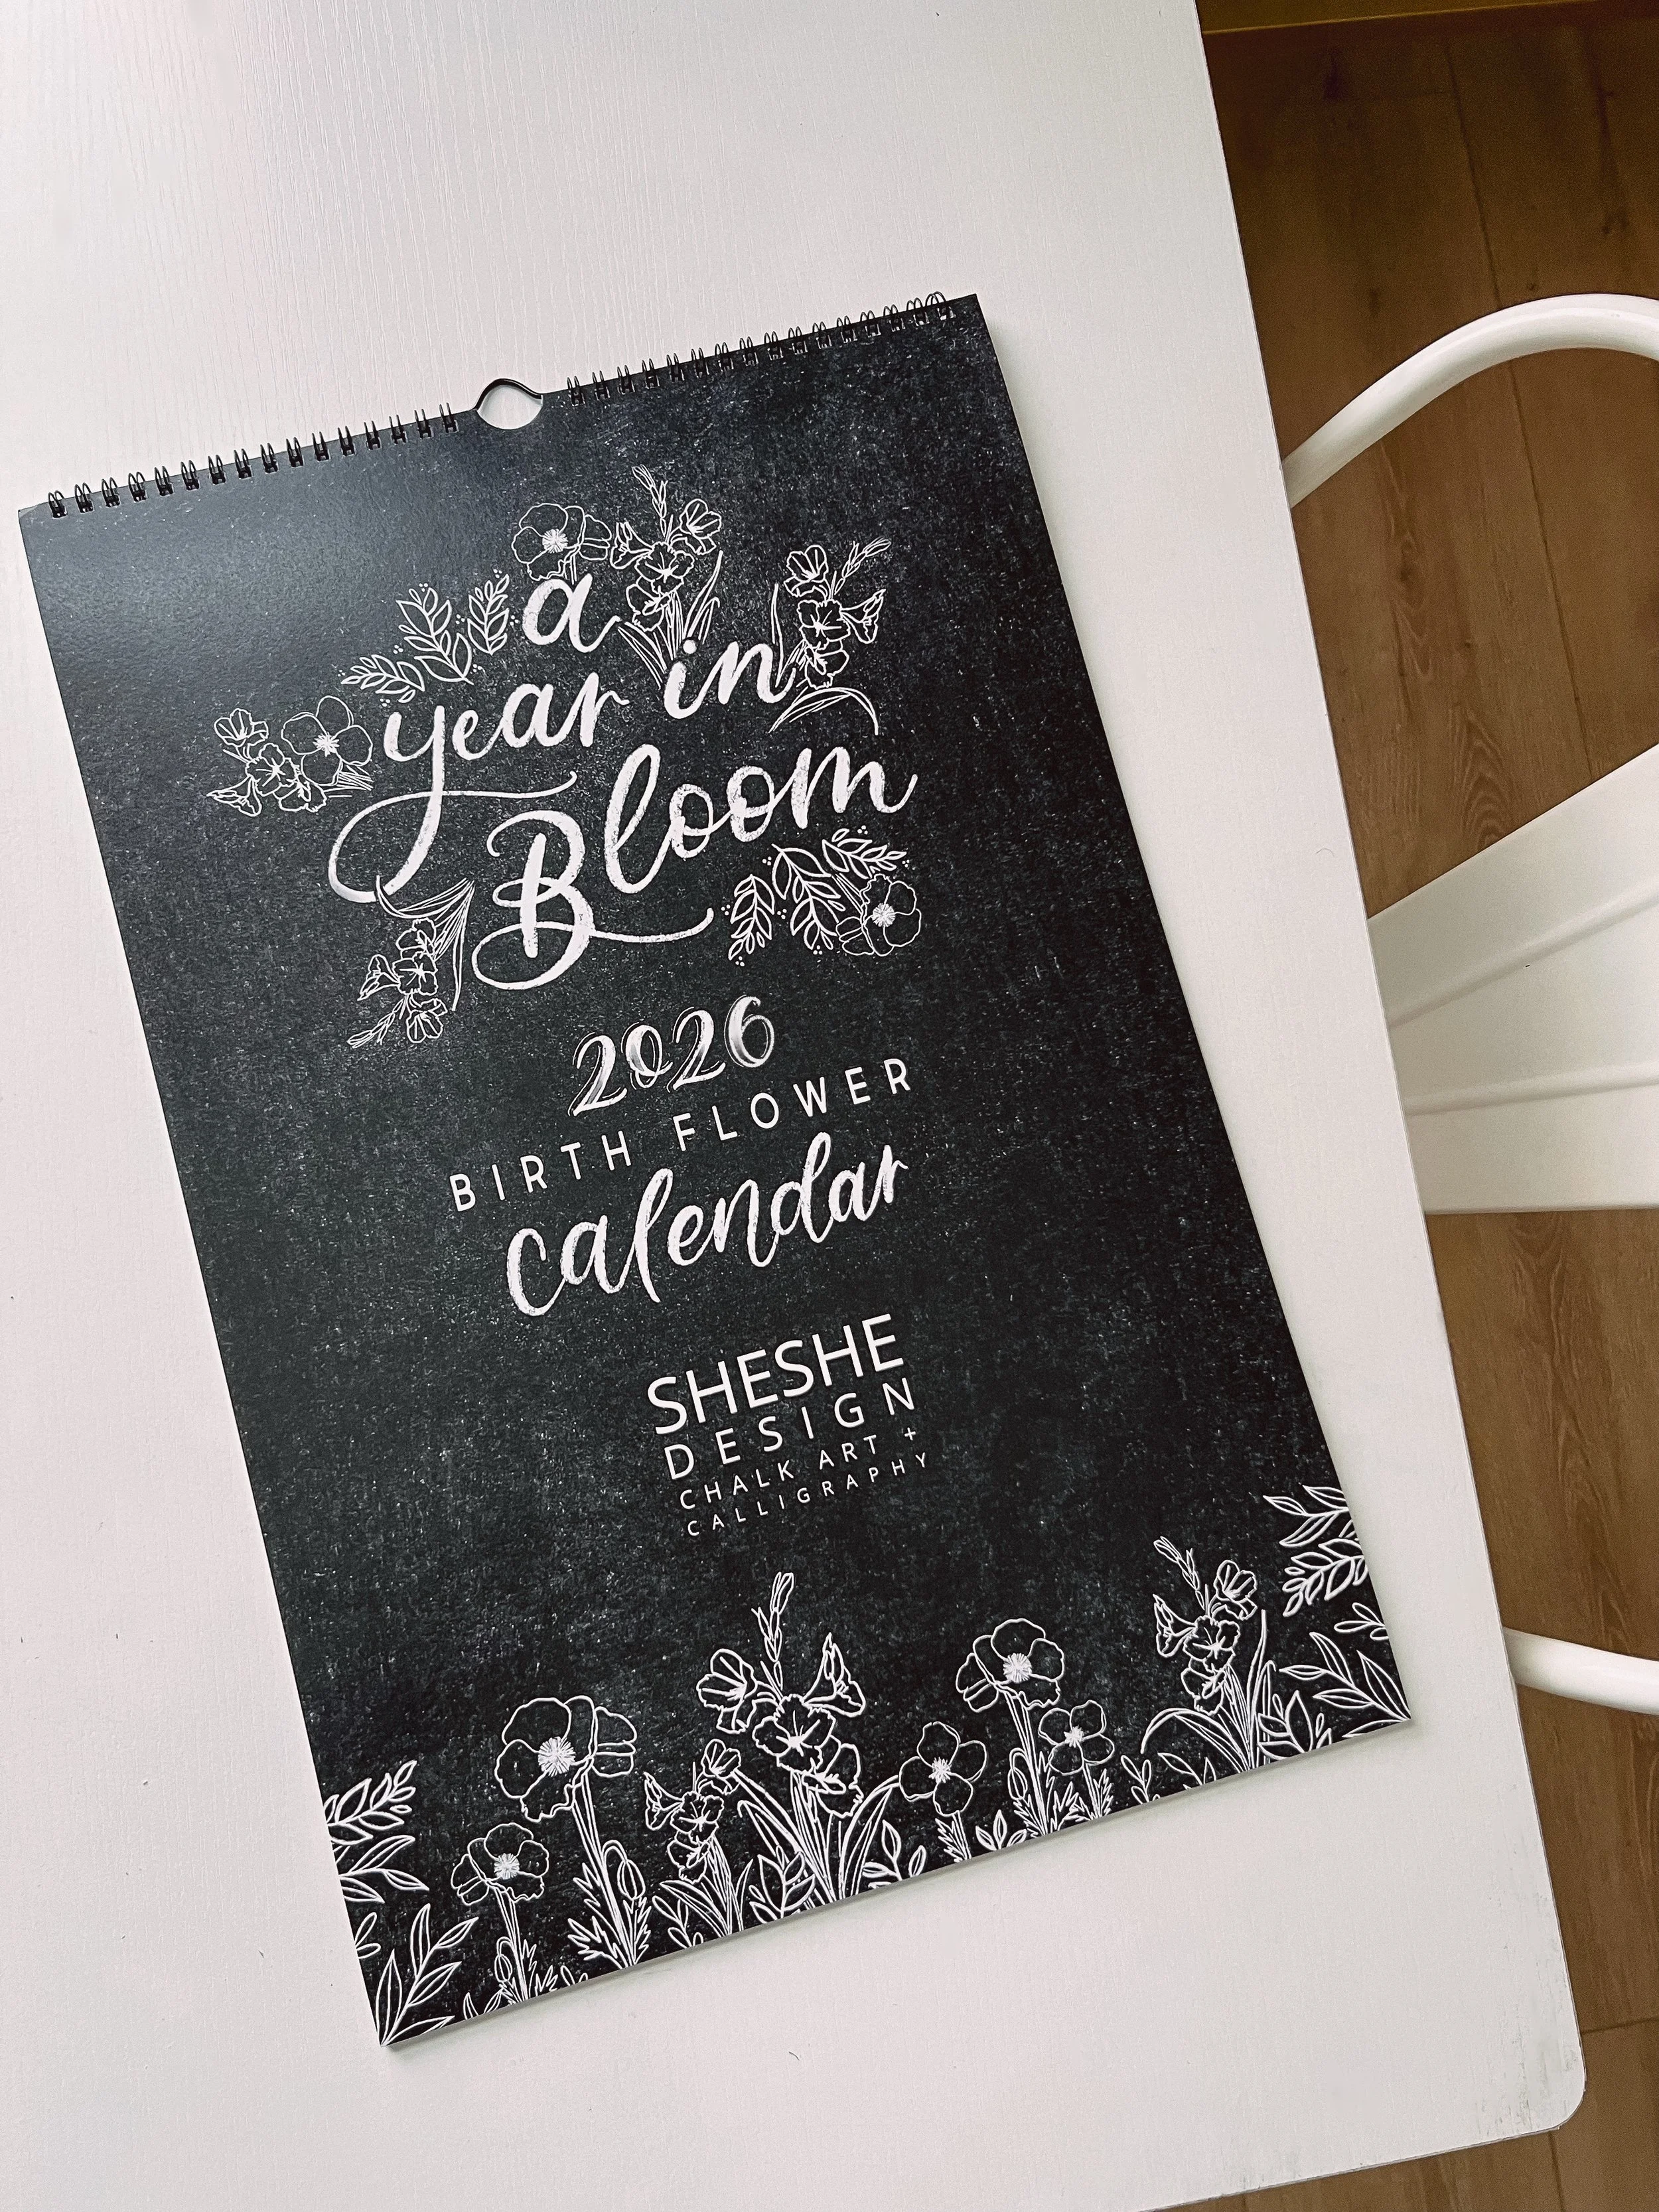 a
year in
Bloom
2026
BIRTH FLOWER
calendar
SHESHE
DESIGN
CHALK ART +
CALLIGRAPHY